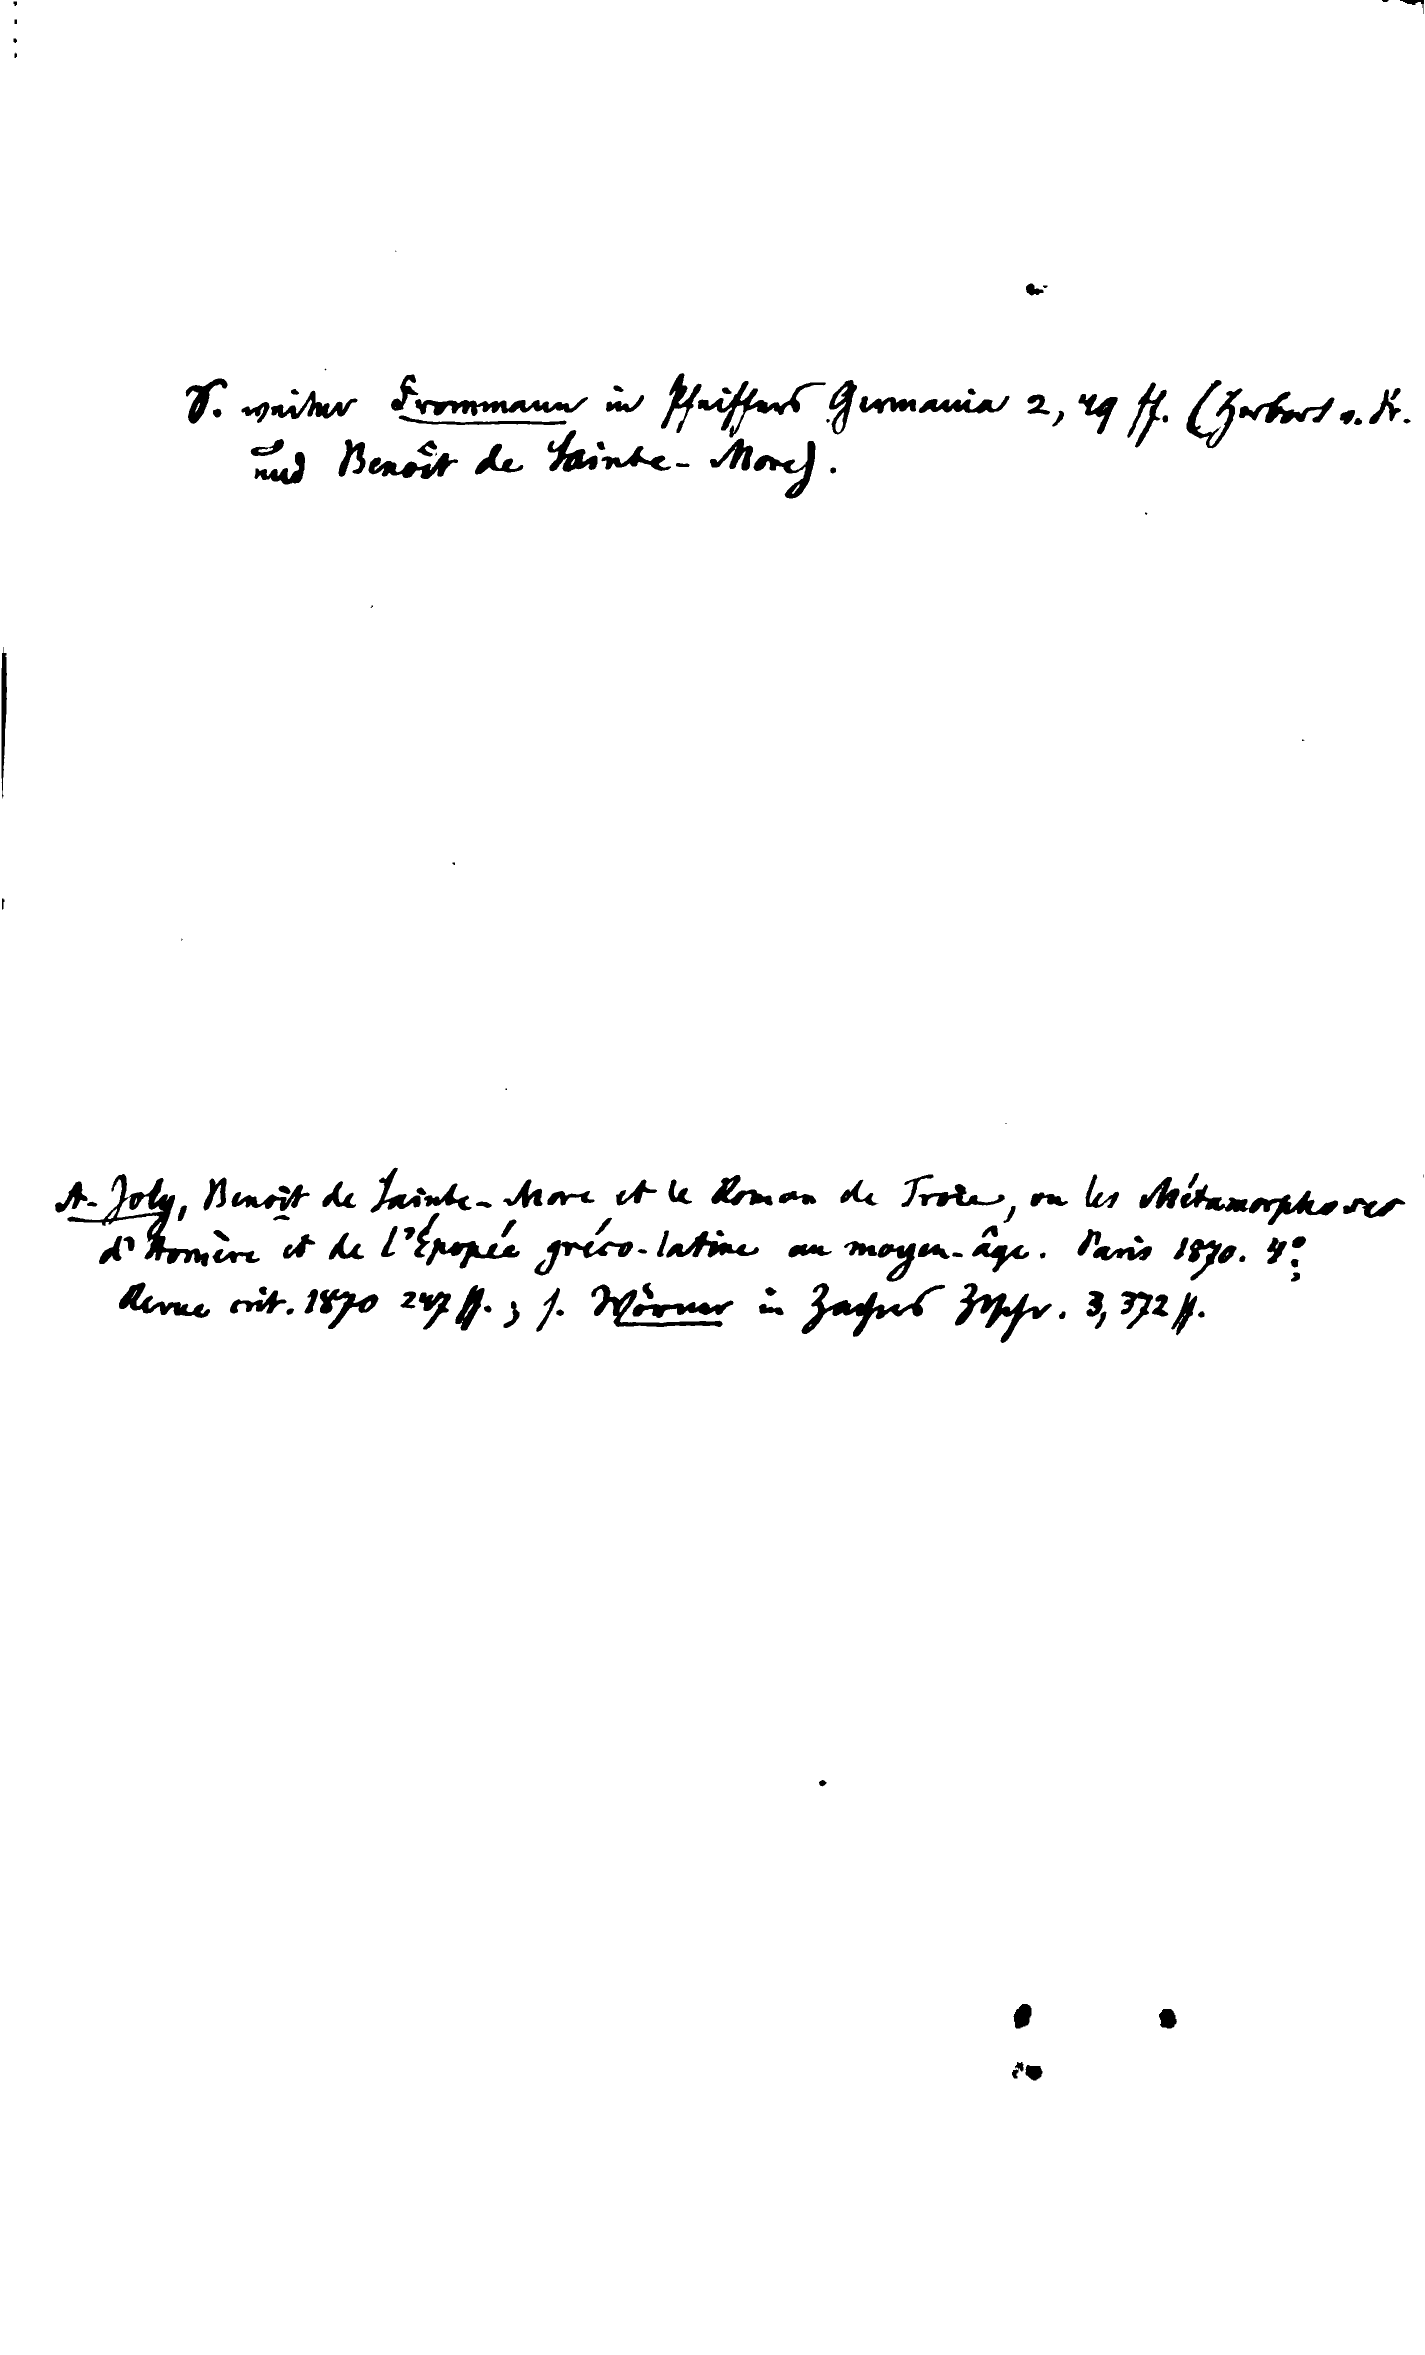 S. weiter Frommann in Pfeiffers Germania 2, 49 ff. (Herbort v. Fr.
und Benoît de Sainte-More).
A. Joly, Benoît de Sainte-More et le Roman de Troie, ou les Métamorphoses
d'Homère et de l'Épopée gréco-latine au moyen-âge. Paris 1870. 4°;
Revue crit. 1870 247 ff.; s. Wörner in Zachers Ztschr. 3, 372 ff.